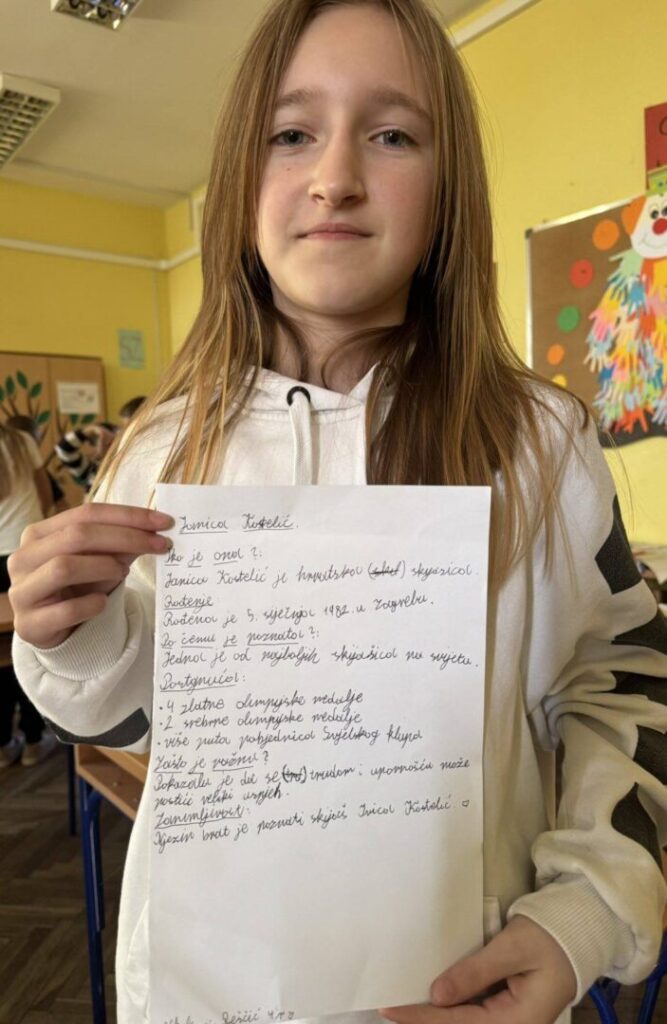 Janica Kostelić.
Tko je ona?:
Janica Kostelić je hrvatska skijašica.
Rođenje:
Rođena je 5. siječnja 1982. u Zagrebu.
Po čemu je poznata?:
Jedna je od najboljih skijašica na svijetu.
Postignuća:
• 4 zlatne olimpijske medalje
• 2 srebrne olimpijske medalje
• više puta pobjednica Svjetskog kupa
Zašto je važna?
Pokazala je da se trudom i upornošću može
postić veliki uspjeh.
Zanimljivost:
Njezin brat je poznati skijaš Ivica Kostelić.